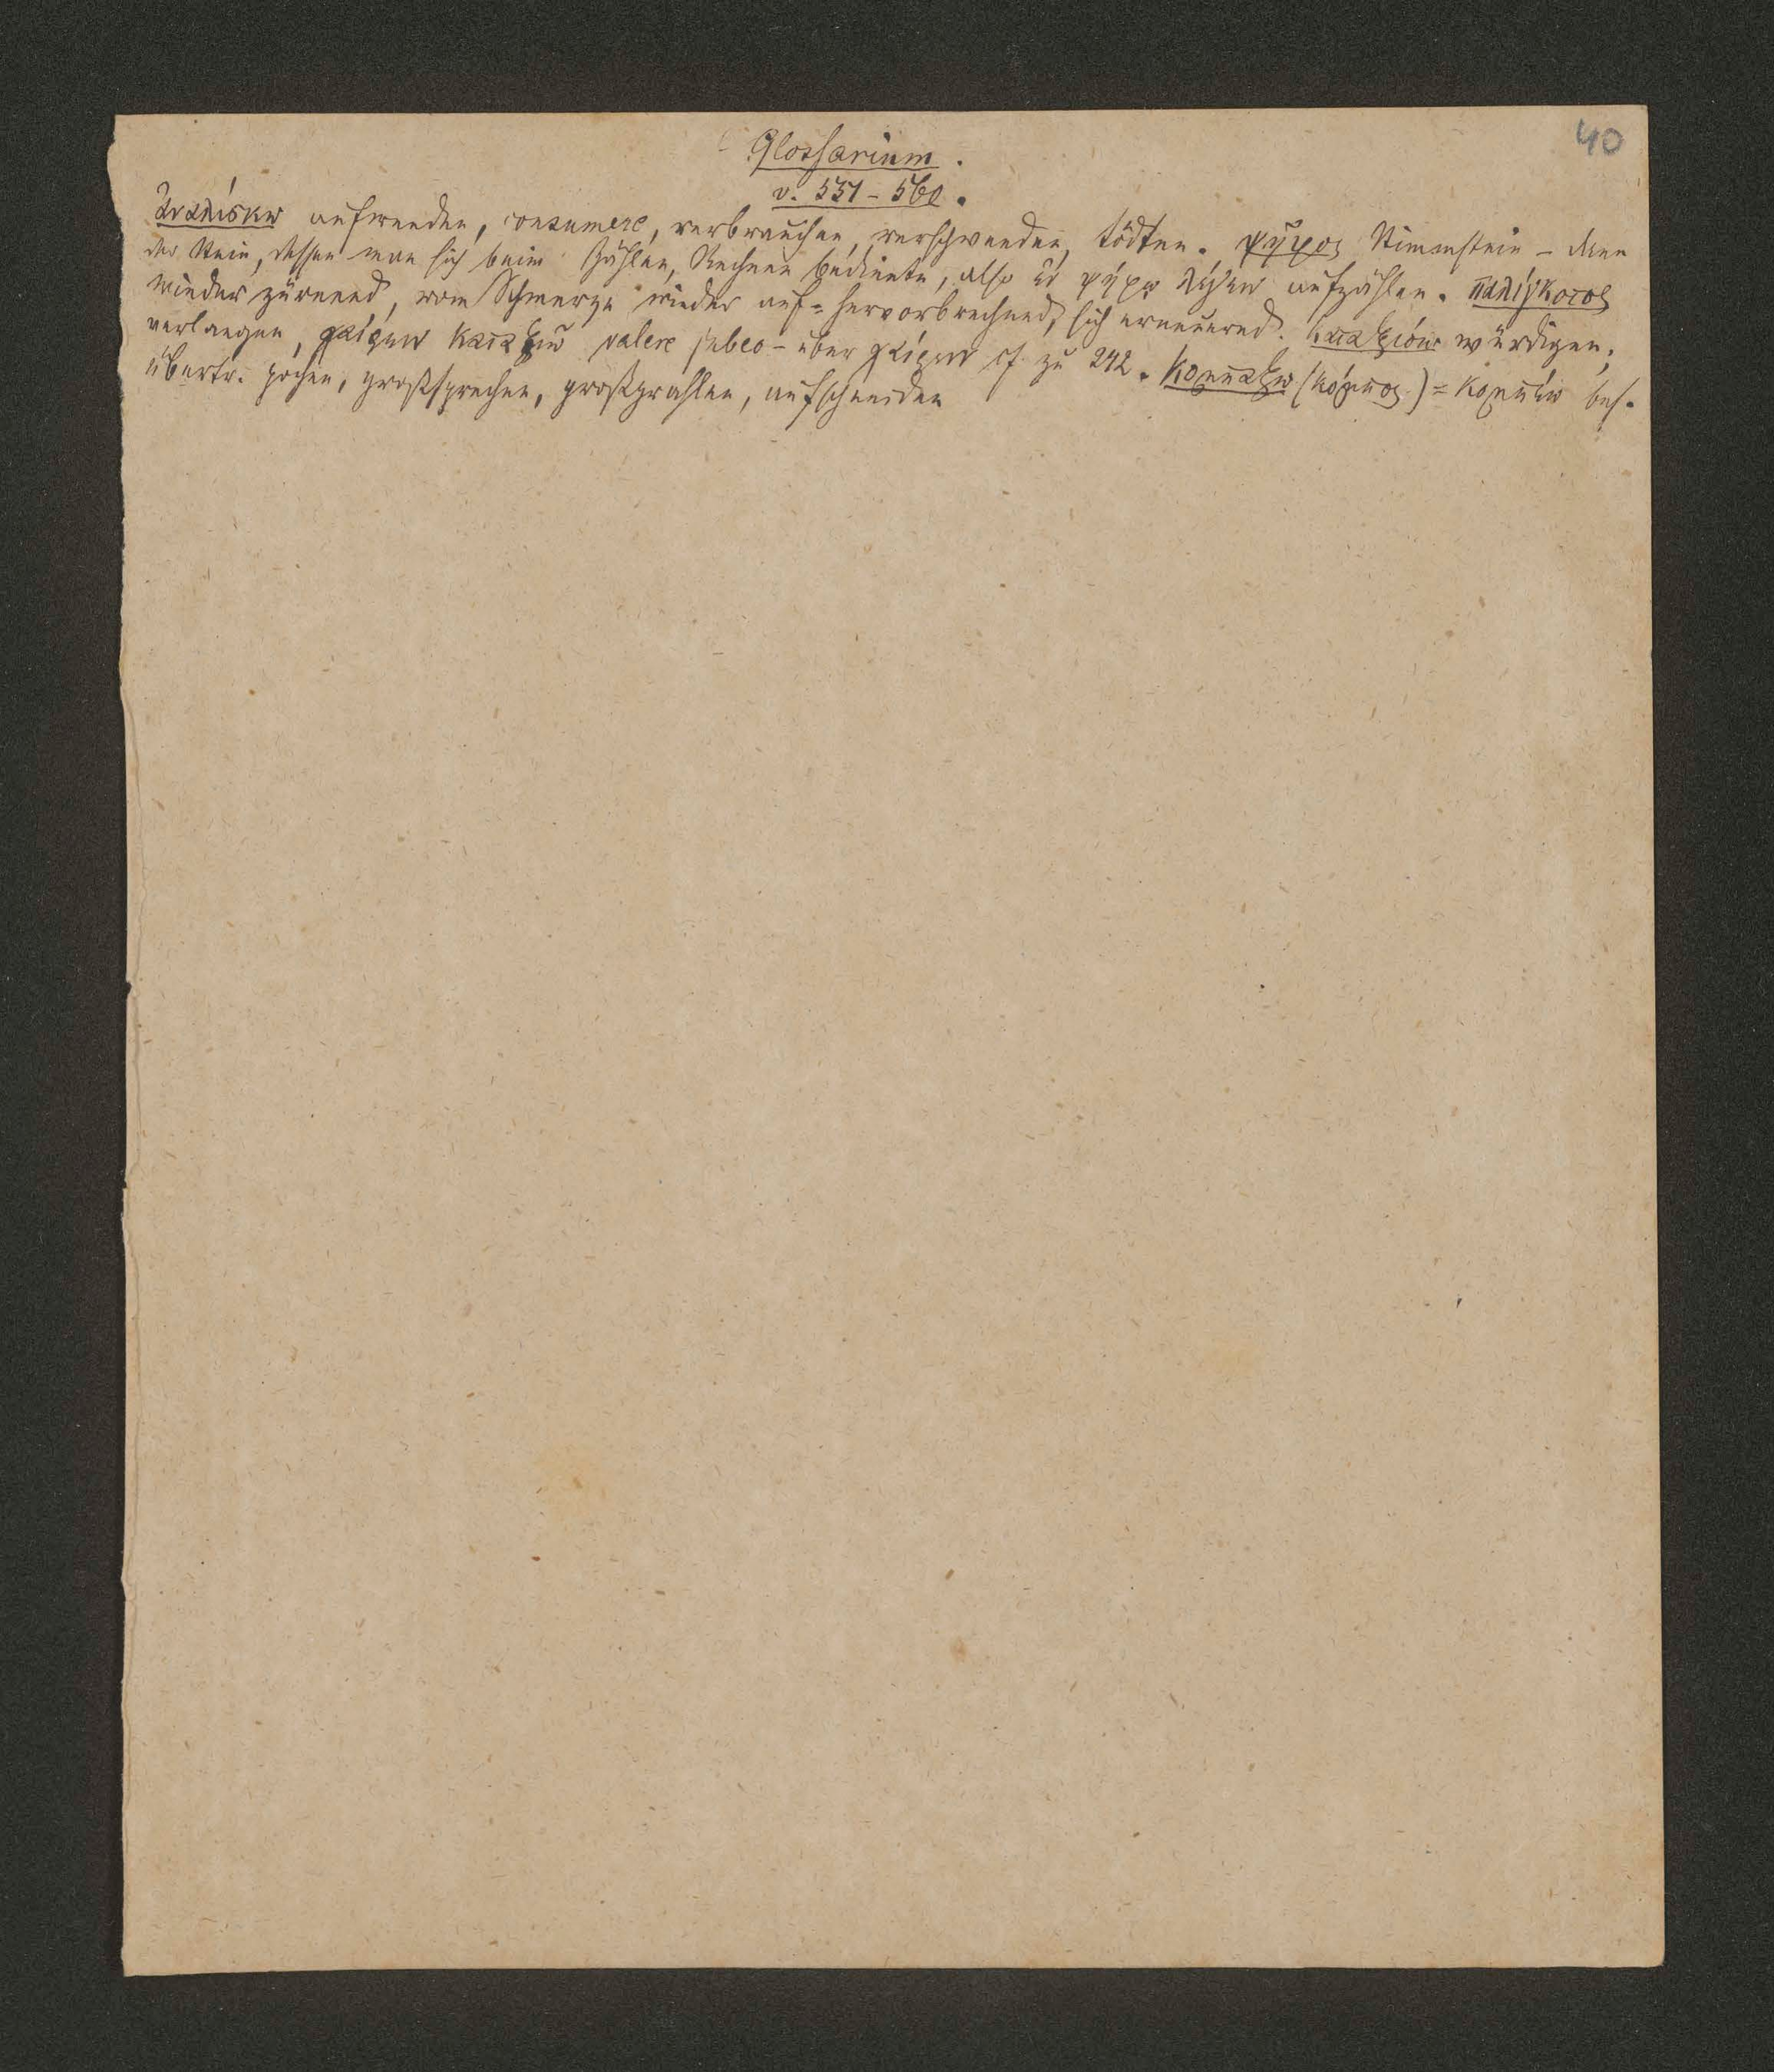 40
Glossarium.
v. 551-560.
ἀναλίσκω aufwenden, consumere, verbrauchen, verschwenden, tödten. ψῆφος Stimmstein – dann
der Stein, dessen man sich beim Zählen, Rechnen bediente, also ἐν ψήφῳ λέγειν aufzählen. παλίγκοτος
wieder zürnend, vom Schmerze wieder auf= hervorbrechend, sich erneuernd. καταξιόω würdigen,
verlangen, χαίρειν καταξιῶ valere jubeo – über χαίρειν cf. zu 242. κομπάζω (κόμπος) = κομπέω bes.
übertr. pochen, großsprechen, großprahlen, aufschneiden